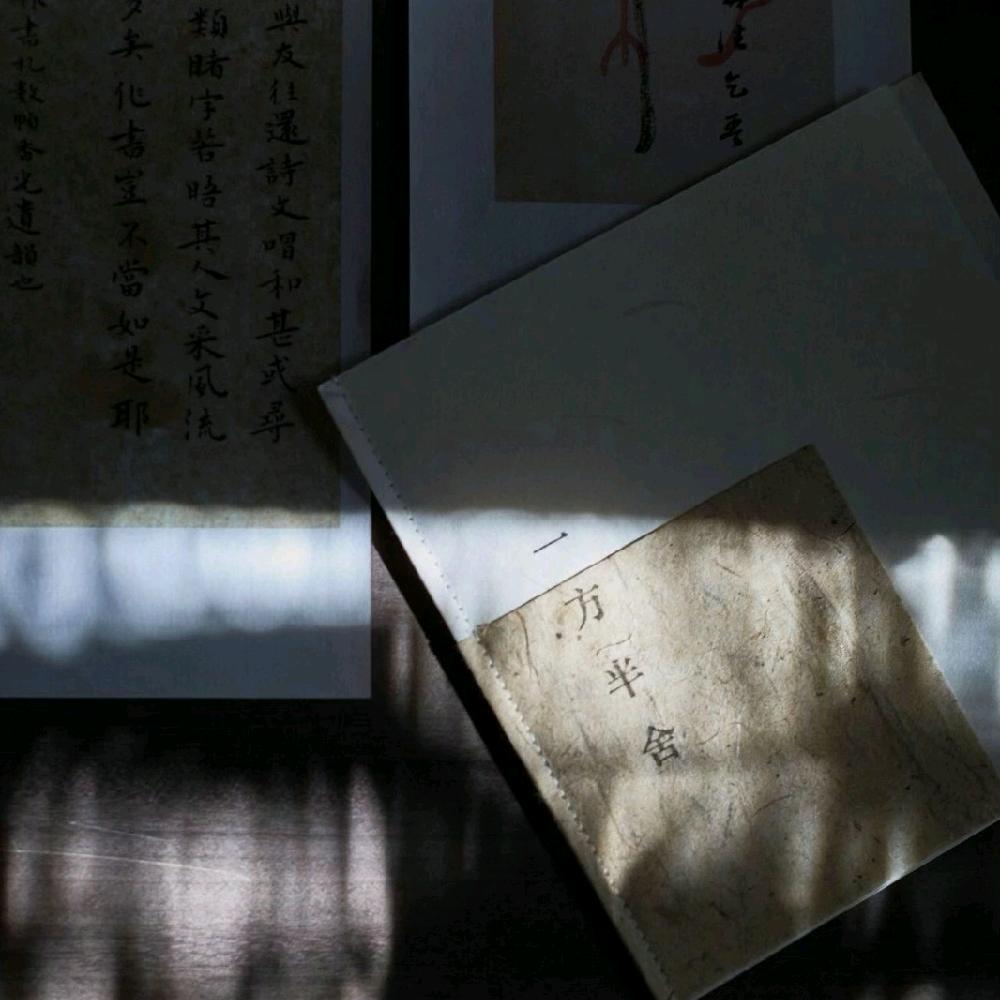 與友往還詩文唱和甚或尋
類睹字若晤其人文采風流
矣作書豈不當如是耶
書札數晦香光遺韻也
一方半舍